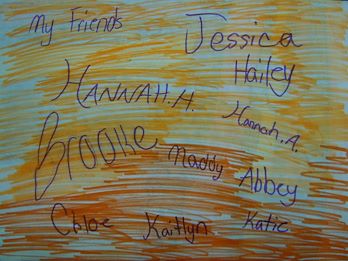 My Friends
Jessica
Hailey
HANNAH.H.
Hannah.A.
Brooke
Maddy
Abbey
Chloe
Kaitlyn
Katie